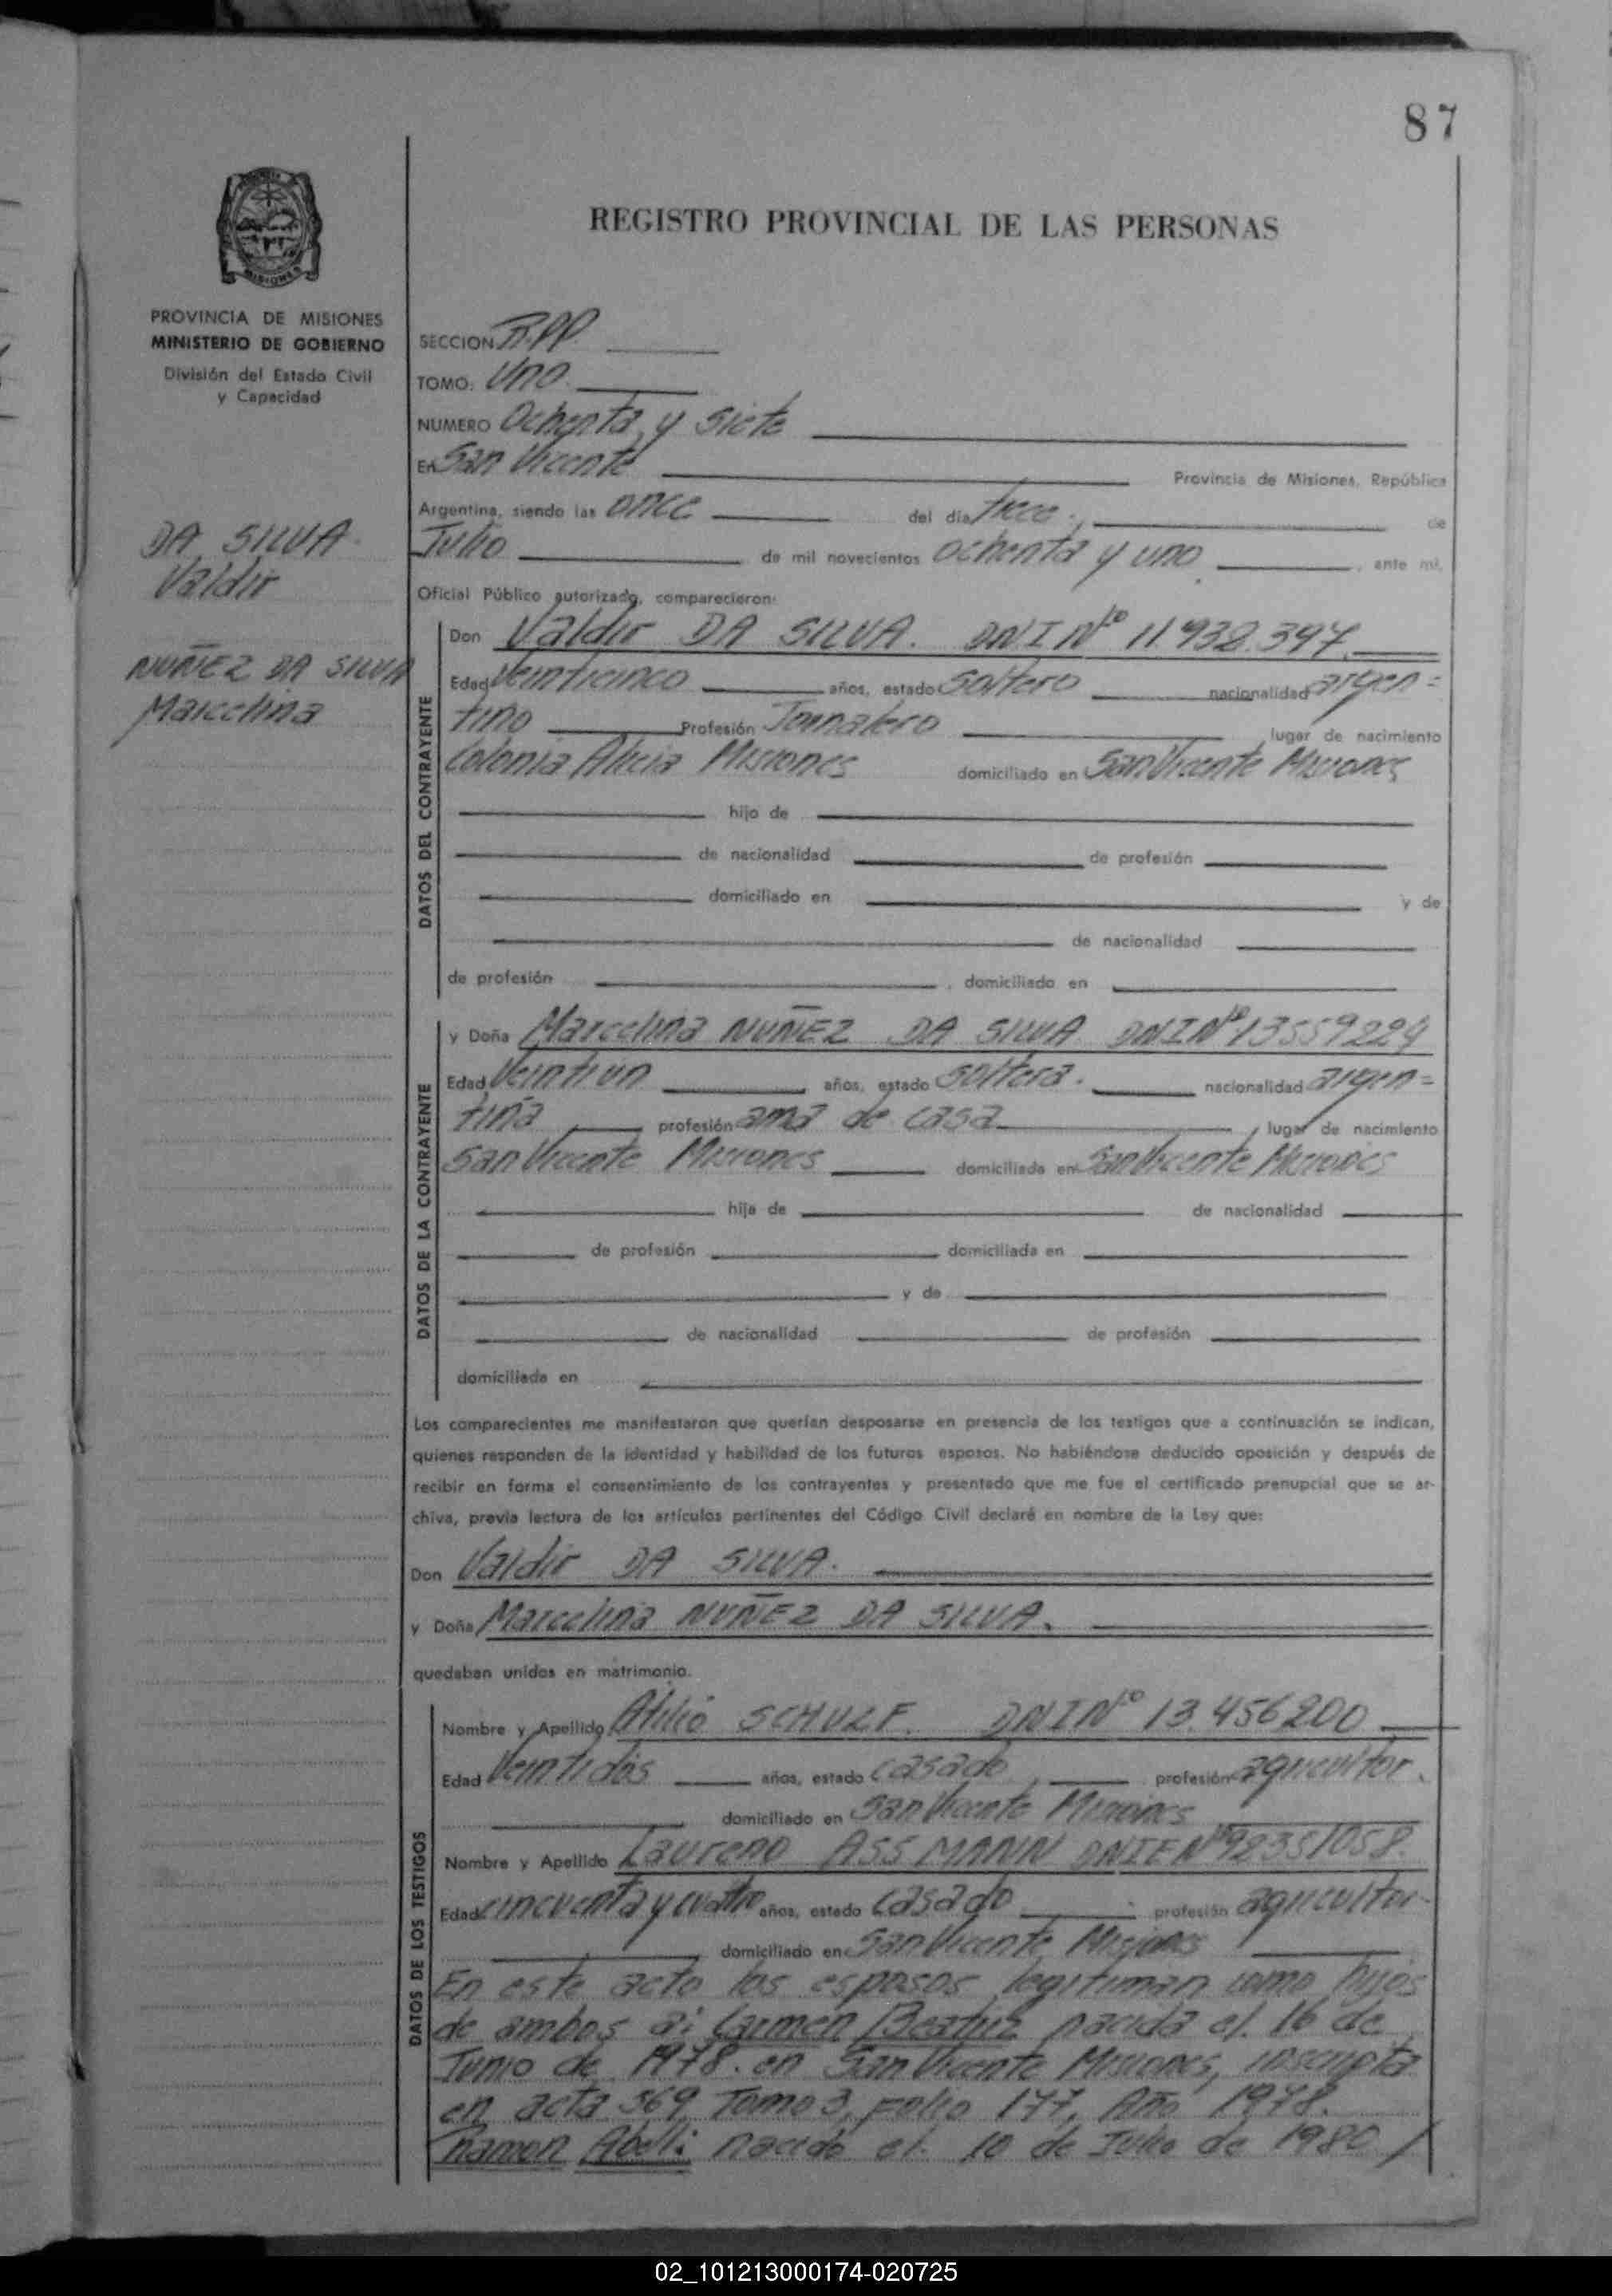 87
REGISTRO PROVINCIAL DE LAS PERSONAS
MISIONES
PROVINCIA DE MISIONES
MINISTERIO DE GOBIERNO
División del Estado Civil
y Capacidad
DA SILVA
Valdir
NUÑEZ DA SILVA
Marcelina
SECCION R.P.P.
TOMO: Uno
NUMERO Ochenta y Siete
En San Vicente Provincia de Misiones, República
Argentina, siendo las once del día trece de
Julio de mil novecientos ochenta y uno, ante mí,
Oficial Público autorizado, comparecieron:
DATOS DEL CONTRAYENTE
Don Valdir DA SILVA. DNI Nº 11.938.397
Edad Veinticinco años, estado Soltero nacionalidad argen=
tino Profesión Jornalero lugar de nacimiento
Colonia Alicia Misiones domiciliado en San Vicente Misiones
hijo de
de nacionalidad de profesión
domiciliado en y de
de nacionalidad
de profesión , domiciliado en
DATOS DE LA CONTRAYENTE
y Doña Marcelina NUÑEZ DA SILVA DNI Nº 13559224
Edad Veintiun años, estado Soltera. nacionalidad argen=
tina profesión ama de casa, lugar de nacimiento
San Vicente Misiones domiciliada en San Vicente Misiones
hija de de nacionalidad
de profesión domiciliada en
y de
de nacionalidad de profesión
domiciliada en
Los comparecientes me manifestaron que querían desposarse en presencia de los testigos que a continuación se indican,
quienes responden de la identidad y habilidad de los futuros esposos. No habiéndose deducido oposición y después de
recibir en forma el consentimiento de los contrayentes y presentado que me fue el certificado prenupcial que se ar-
chiva, previa lectura de los artículos pertinentes del Código Civil declaré en nombre de la Ley que:
Don Valdir DA SILVA.
y Doña Marcelina NUÑEZ DA SILVA.
quedaban unidos en matrimonio.
DATOS DE LOS TESTIGOS
Nombre y Apellido Atilio DNI Nº 13.456200
Edad Veintidós años, estado casado, profesión agricultor.
domiciliado en San Vicente Misiones
Nombre y Apellido Laureno ASSMANN DNIE Nº 92351058.
Edad cincuenta y cuatro años, estado casado profesión agricultor
domiciliado en San Vicente Misiones
En este acto los esposos legitiman como hijos
de ambos a: Carmen Beatriz nacida el 16 de
Junio de 1978. en San Vicente Misiones, inscripta
en acta 569, Tomo 3, Folio 177, Año 1978.
Ramon nacido el 10 de Julio de 1980 /
02_101213000174-020725